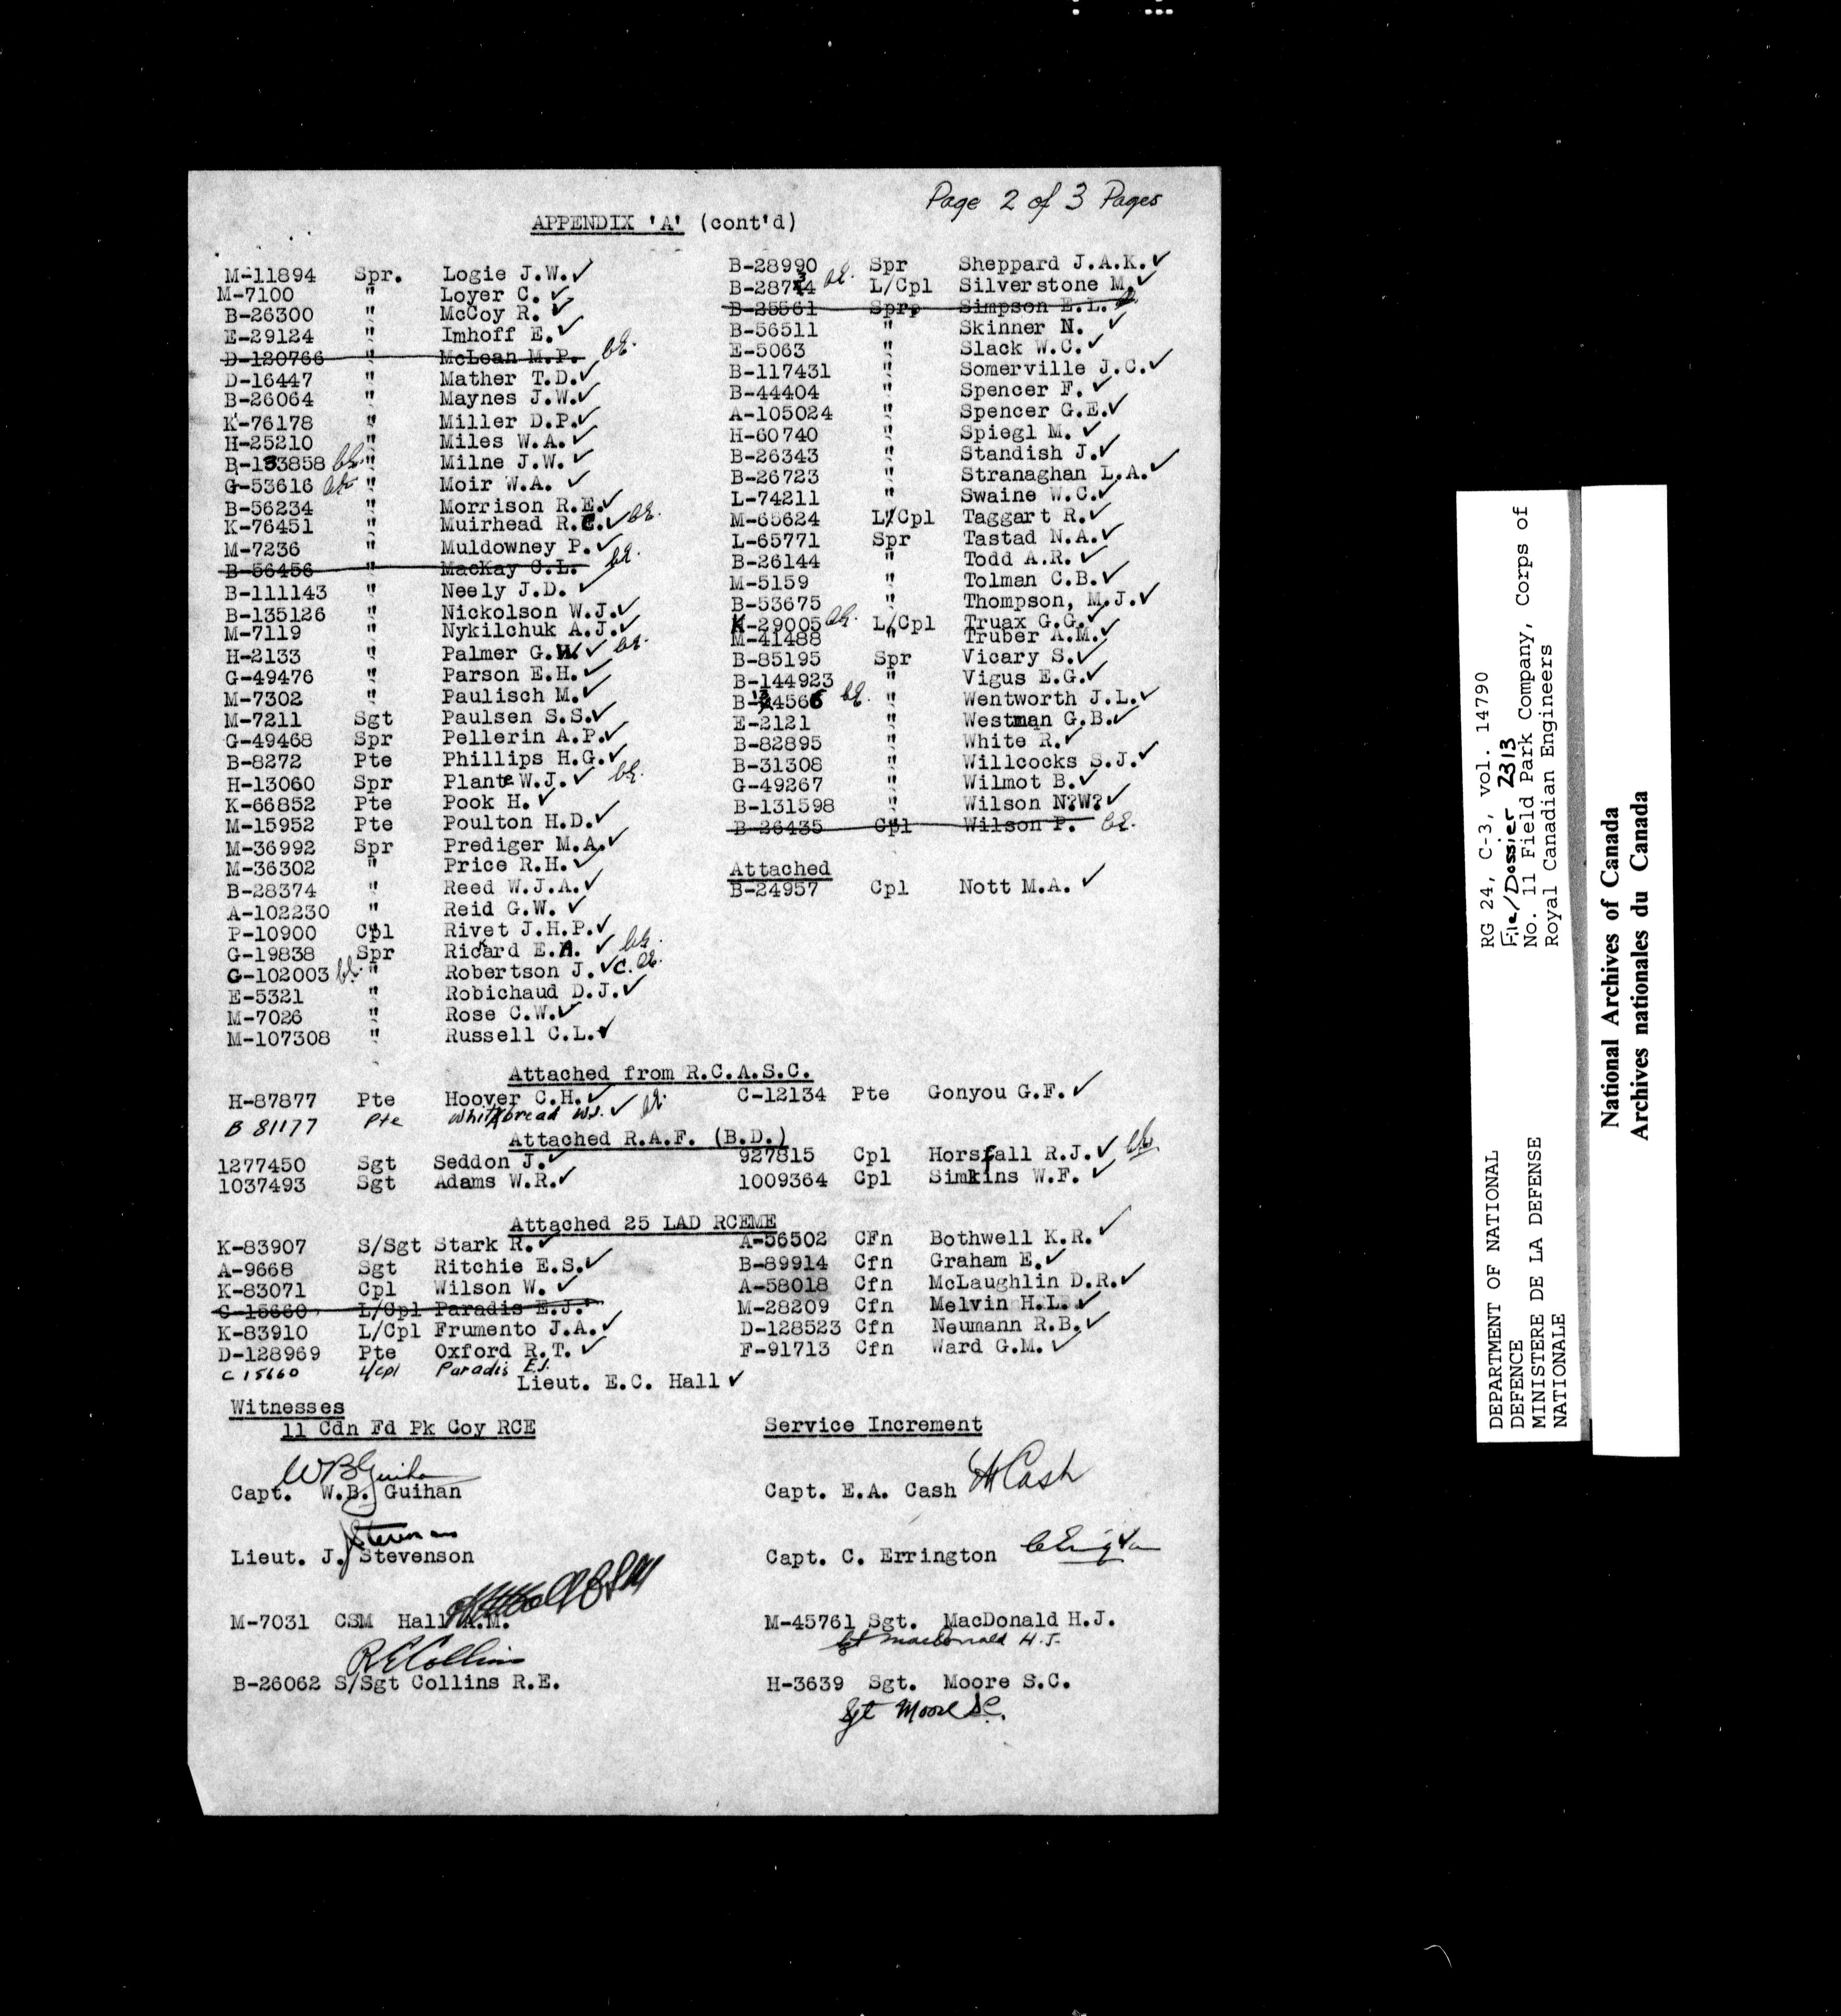 Page 2 of 3 Pages
APPENDIX 'A' (cont'd)
M-11894 Spr. Logie J.W.✓
M-7100 " Loyer C. ✓
B-26300 " McCoy R. ✓
E-29124 " Imhoff E.✓
D-120766 " McLean M.P.
D-16447 " Mather T.D.✓
B-26064 " Maynes J.W.✓
K-76178 " Miller D.P.✓
H-25210 " Miles W.A.✓
B-133858 " Milne J.W.✓
G-53616 " Moir W.A. ✓
B-56234 " Morrison R.E.✓
K-76451 " Muirhead R.C.✓
M-7236 " Muldowney P.✓
B-56456 " MacKay C.L.
B-111143 " Neely J.D. ✓
B-135126 " Nickolson W.J.✓
M-7119 " Nykilchuk A.J.✓
H-2133 " Palmer G.W.✓
G-49476 " Parson E.H.✓
M-7302 " Paulisch M.✓
M-7211 Sgt Paulsen S.S.✓
G-49468 Spr Pellerin A.P.✓
B-8272 Pte Phillips H.G.✓
H-13060 Spr Plante W.J.✓
K-66852 Pte Pook H.✓
M-15952 Pte Poulton H.D.✓
M-36992 Spr Prediger M.A.✓
M-36302 " Price R.H.✓
B-28374 " Reed W.J.A.✓
A-102230 " Reid G.W. ✓
P-10900 Cpl Rivet J.H.P.✓
G-19838 Spr Ricard E.A. ✓
G-102003 " Robertson J.✓C.
E-5321 " Robichaud D.J.✓
M-7026 " Rose C.W.✓
M-107308 " Russell C.L.✓
B-28990 Spr Sheppard J.A.K.✓
B-28734 L/Cpl Silverstone M.✓
B-25561 Spr. Simpson E.L.
B-56511 " Skinner N. ✓
E-5063 " Slack W.C.✓
B-117431 " Somerville J.C.✓
B-44404 " Spencer F. ✓
A-105024 " Spencer G.E.✓
H-60740 " Spiegl M. ✓
B-26343 " Standish J.✓
B-26723 " Stranaghan L.A.✓
L-74211 " Swaine W.C.✓
M-65624 L/Cpl Taggart R.✓
L-65771 Spr Tastad N.A.✓
B-26144 " Todd A.R. ✓
M-5159 " Tolman C.B.✓
B-53675 " Thompson, M.J.✓
K-29005 L/Cpl Truax G.G.✓
M-41488 " Truber A.M.✓
B-85195 Spr Vicary S.✓
B-144923 " Vigus E.G.✓
B-134566 " Wentworth J.L.✓
E-2121 " Westman G.B.✓
B-82895 " White R.✓
B-31308 " Willcocks S.J.✓
G-49267 " Wilmot B.✓
B-131598 " Wilson N?W?✓
B-26435 Cpl Wilson P.
Attached
B-24957 Cpl Nott M.A. ✓
Attached from R.C.A.S.C.
H-87877 Pte Hoover C.H.✓ C-12134 Pte Gonyou G.F.✓
B 81177 Pte Whitbread W.J. ✓
Attached R.A.F. (B.D.)
1277450 Sgt Seddon J.✓ 927815 Cpl Horsfall R.J.✓
1037493 Sgt Adams W.R.✓ 1009364 Cpl Simkins W.F. ✓
Attached 25 LAD RCEME
K-83907 S/Sgt Stark R.✓ A-56502 CFn Bothwell K.R.✓
A-9668 Sgt Ritchie E.S.✓ B-89914 Cfn Graham E.✓
K-83071 Cpl Wilson W. ✓ A-58018 Cfn McLaughlin D.R.✓
C-15660 L/Cpl Paradis E.J. M-28209 Cfn Melvin H.L.✓
K-83910 L/Cpl Frumento J.A.✓ D-128523 Cfn Neumann R.B.✓
D-128969 Pte Oxford R.T. ✓ F-91713 Cfn Ward G.M.✓
C 15660 L/Cpl Paradis E.J.
Lieut. E.C. Hall ✓
Witnesses
11 Cdn Fd Pk Coy RCE Service Increment
WBGuihan
Capt. W.B. Guihan Capt. E.A. Cash Cash
Lieut. J. Stevenson Capt. C. Errington
M-7031 CSM Hall A.M. M-45761 Sgt. MacDonald H.J.
Sgt MacDonald H.J.
RECollins
B-26062 S/Sgt Collins R.E. H-3639 Sgt. Moore S.C.
Sgt Moore SC.
DEPARTMENT OF NATIONAL
DEFENCE
MINISTERE DE LA DEFENSE
NATIONALE
RG 24, C-3, vol. 14790
File/Dossier 2313
No. 11 Field Park Company, Corps of
Royal Canadian Engineers
National Archives of Canada
Archives nationales du Canada